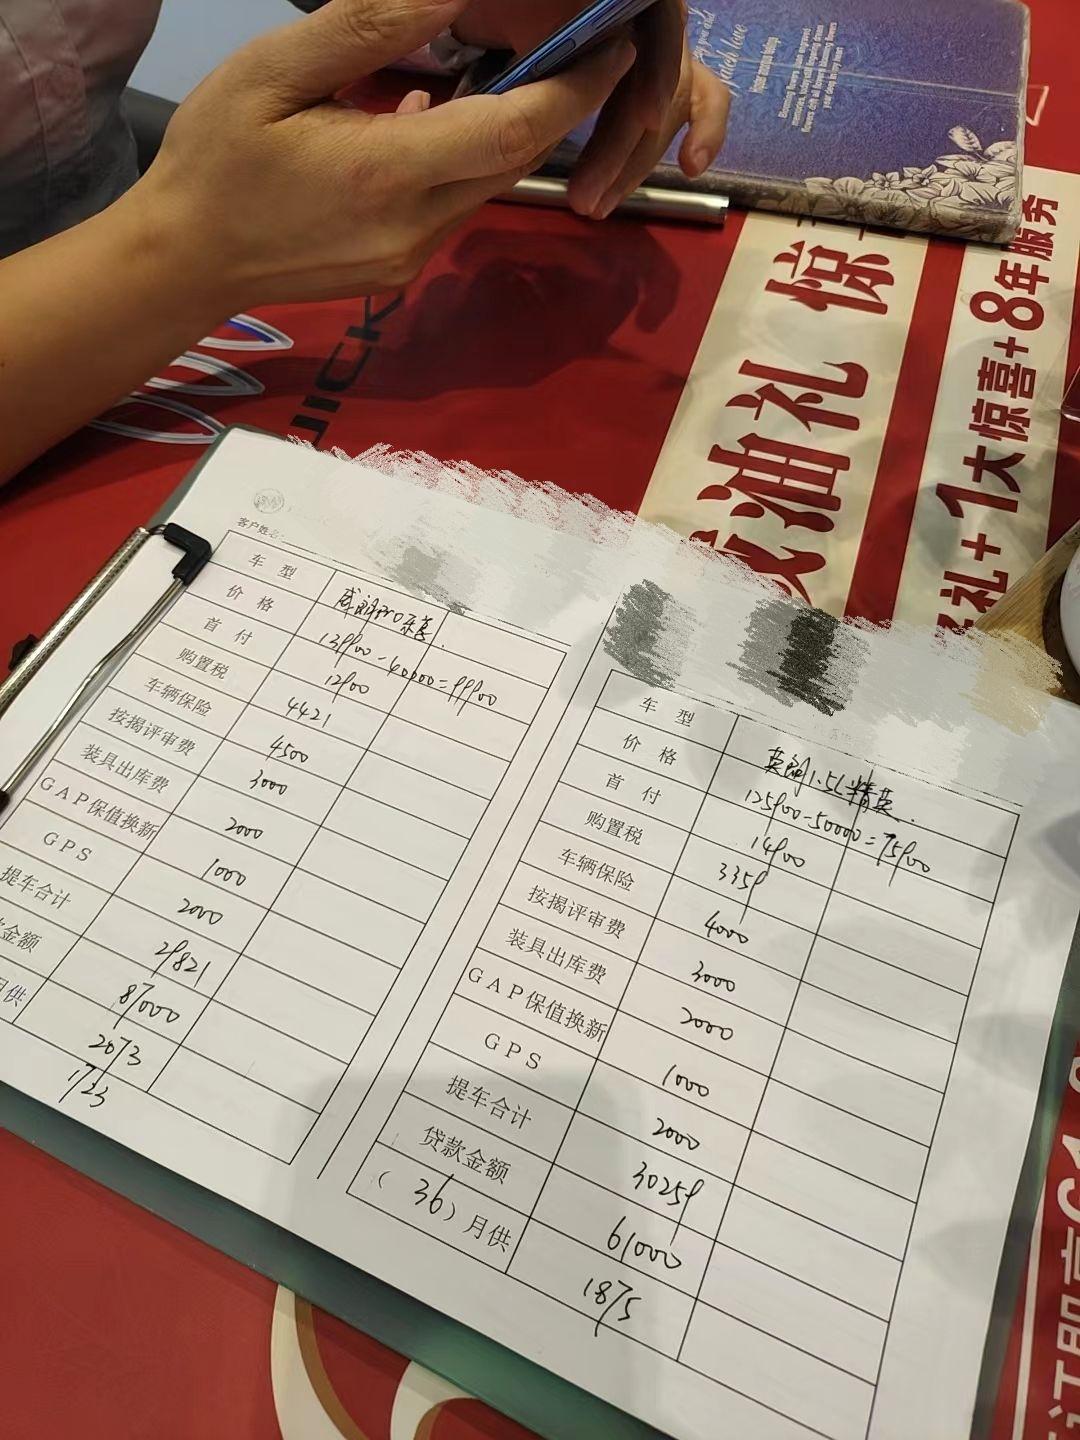 Blooming flowers leave engraved
UICK
油礼 惊
礼+1大惊喜+8年服务
客户姓名:
车 型 威朗pro乐享
价 格 139900-40000=99900
首 付 12900
购置税 4421
车辆保险 4500
按揭评审费 3000
装具出库费 2000
GAP保值换新 1000
GPS 2000
提车合计 29821
金额 87000
月供 2073
1723
车 型 英朗1.5L精英
价 格 125900-50000=75900
首 付 14900
购置税 3359
车辆保险 4000
按揭评审费 3000
装具出库费 2000
GAP保值换新 1000
GPS 2000
提车合计 30259
贷款金额 61000
( 36 )月供 1875